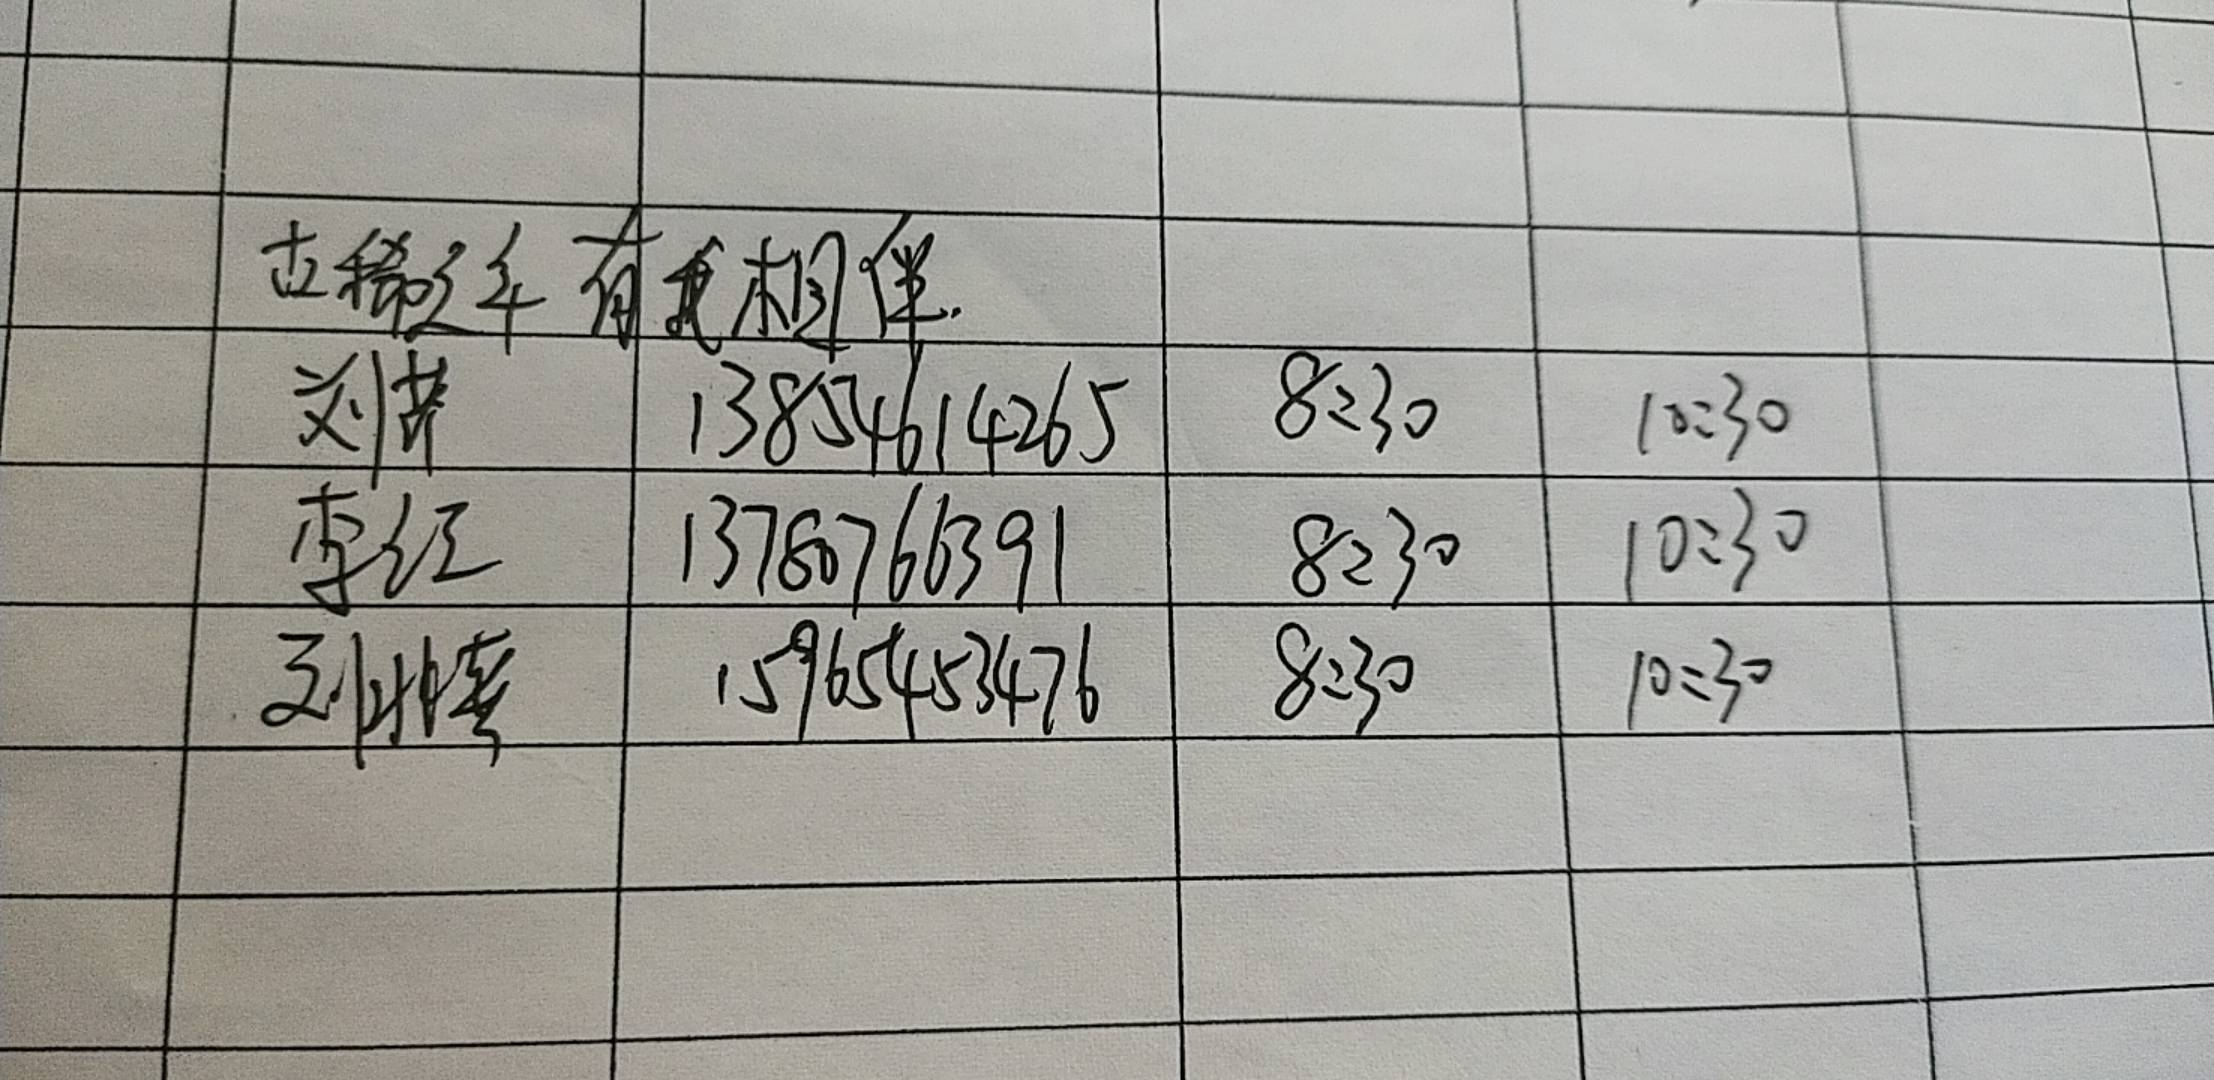 古稀之年 有我相伴.
刘 13854614265 8:30 10:30
李红 13780766391 8:30 10:30
刘 15965453476 8:30 10:30